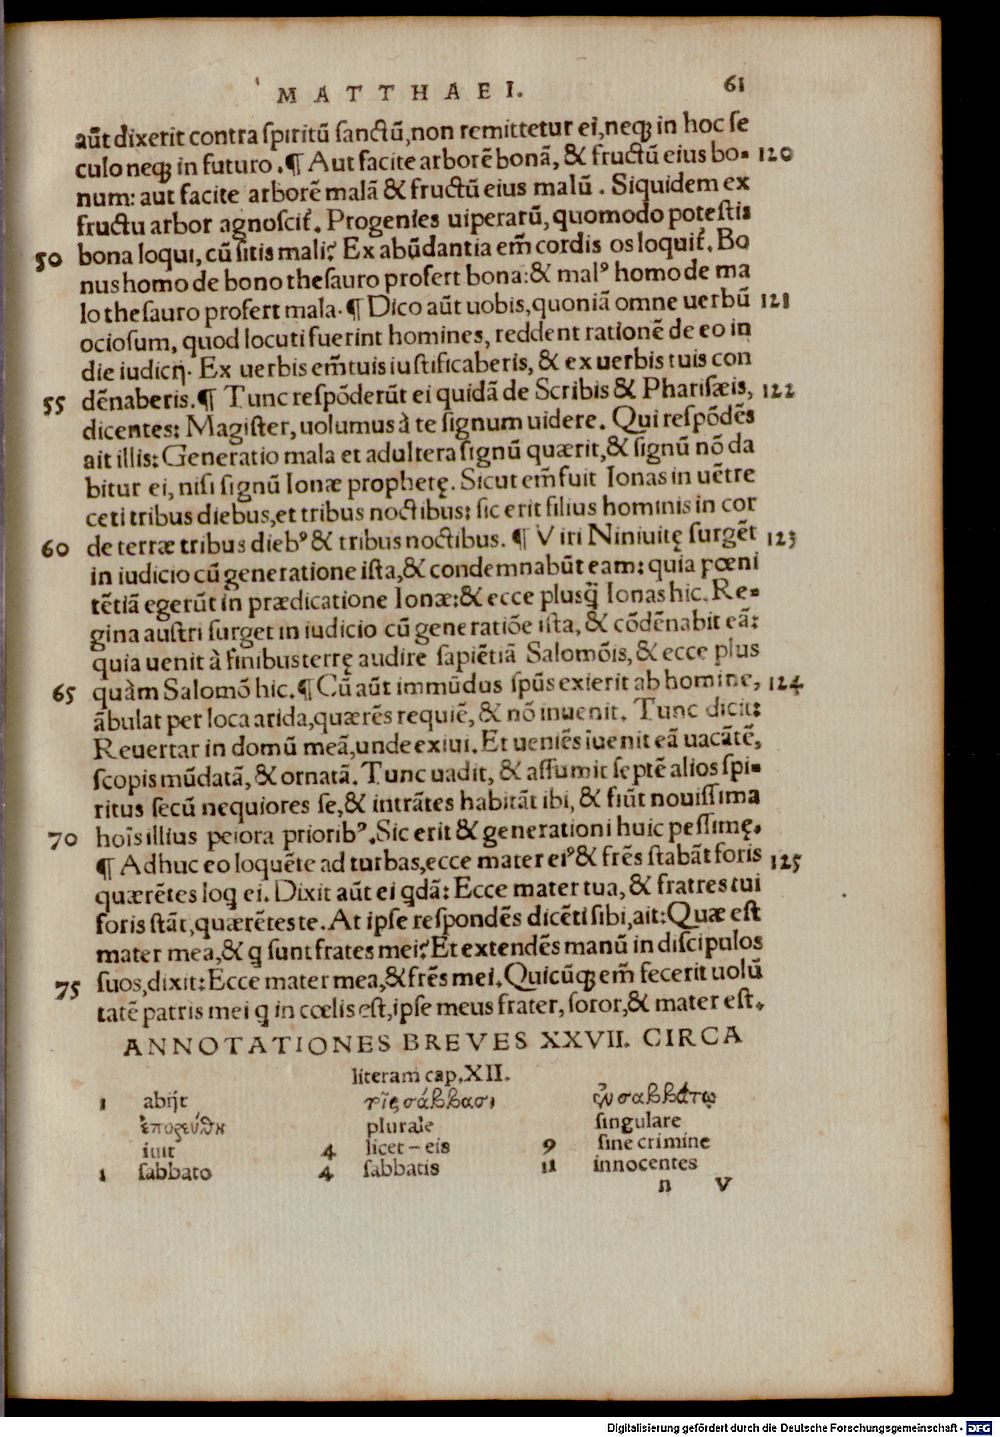 MATTHAEI. 61
aūt dixerit contra ſpiritū ſanctū,non remittetur ei,neqꝫ in hoc ſe
culo neqꝫ in futuro .¶ Aut facite arborē bonā, & fructū eius bo- 120
num: aut facite arborē malā & fructū eius malū . Siquidem ex
fructu arbor agnoscit̄. Progenies uiperarū, quomodo poteſtis
50 bona loqui, cū ſitis mali? Ex abūdantia em̄ cordis os loquit̄. Bo
nus homo de bono theſauro profert bona:& malꝰ homo de ma
lo theſauro profert mala. ¶ Dico aūt uobis, quoniā omne uerbū 121
ocioſum, quod locuti fuerint homines, reddent rationē de eo in
die iudicij. Ex uerbis em̄ tuis iuſtificaberis, & ex uerbis tuis con
55 dēnaberis.¶ Tunc reſpōderūt ei quidā de Scribis & Phariſæis, 122
dicentes: Magiſter, uolumus à te ſignum uidere. Qui reſpōdēs
ait illis: Generatio mala et adultera ſignū quærit,& ſignū nō da
bitur ei, niſi ſignū Ionæ prophetę. Sicut em̄ fuit Ionas in uētre
ceti tribus diebus,et tribus noctibus: ſic erit filius hominis in cor
60 de terræ tribus diebꝰ & tribus noctibus. ¶ Viri Niniuitę ſurgēt 123
in iudicio cū generatione iſta,& condemnabūt eam: quia pœni
tētiā egerūt in prædicatione Ionæ:& ecce plusq̄ Ionas hic. Re-
gina auſtri ſurget in iudicio cū generatiōe iſta, & cōdēnabit eā:
quia uenit à finibus terrę audire ſapiētiā Salomōis, & ecce plus
65 quàm Salomō hic.¶ Cū aūt immūdus ſpūs exierit ab homine, 124
ābulat per loca arida,quærēs requiē, & nō inuenit. Tunc dicit:
Reuertar in domū meā,unde exiui. Et ueniēs iuenit eā uacātē,
ſcopis mūdatā, & ornatā. Tunc uadit, & aſſumit ſeptē alios ſpi-
ritus ſecū nequiores ſe,& intrātes habitāt ibi, & fiūt nouiſſima
70 hoīs illius peiora prioribꝰ. Sic erit & generationi huic peſſimę.
¶ Adhuc eo loquēte ad turbas,ecce mater eiꝰ & frēs ſtabāt foris 125
quærētes loqꝫ ei. Dixit aūt ei qdā: Ecce mater tua, & fratres tui
foris ſtāt,quærētes te. At ipſe reſpondēs dicēti ſibi,ait: Quæ eſt
mater mea,& q ſunt frates mei? Et extendēs manū in diſcipulos
75 ſuos,dixit: Ecce mater mea,& frēs mei. Quicūqꝫ em̄ fecerit uolū
tatē patris mei q in cœlis eſt,ipſe meus frater, ſoror,& mater eſt.
ANNOTATIONES BREVES XXVII. CIRCA
literam cap.XII.
1 abijt
ἐπορεύθη
iuit
1 ſabbato
τοῖς σάββασι
plurale
4 licet – eis
4 ſabbatis
ἐν σαββάτῳ
ſingulare
9 ſine crimine
11 innocentes
n V
Digitalisierung gefördert durch die Deutsche Forschungsgemeinschaft - DFG